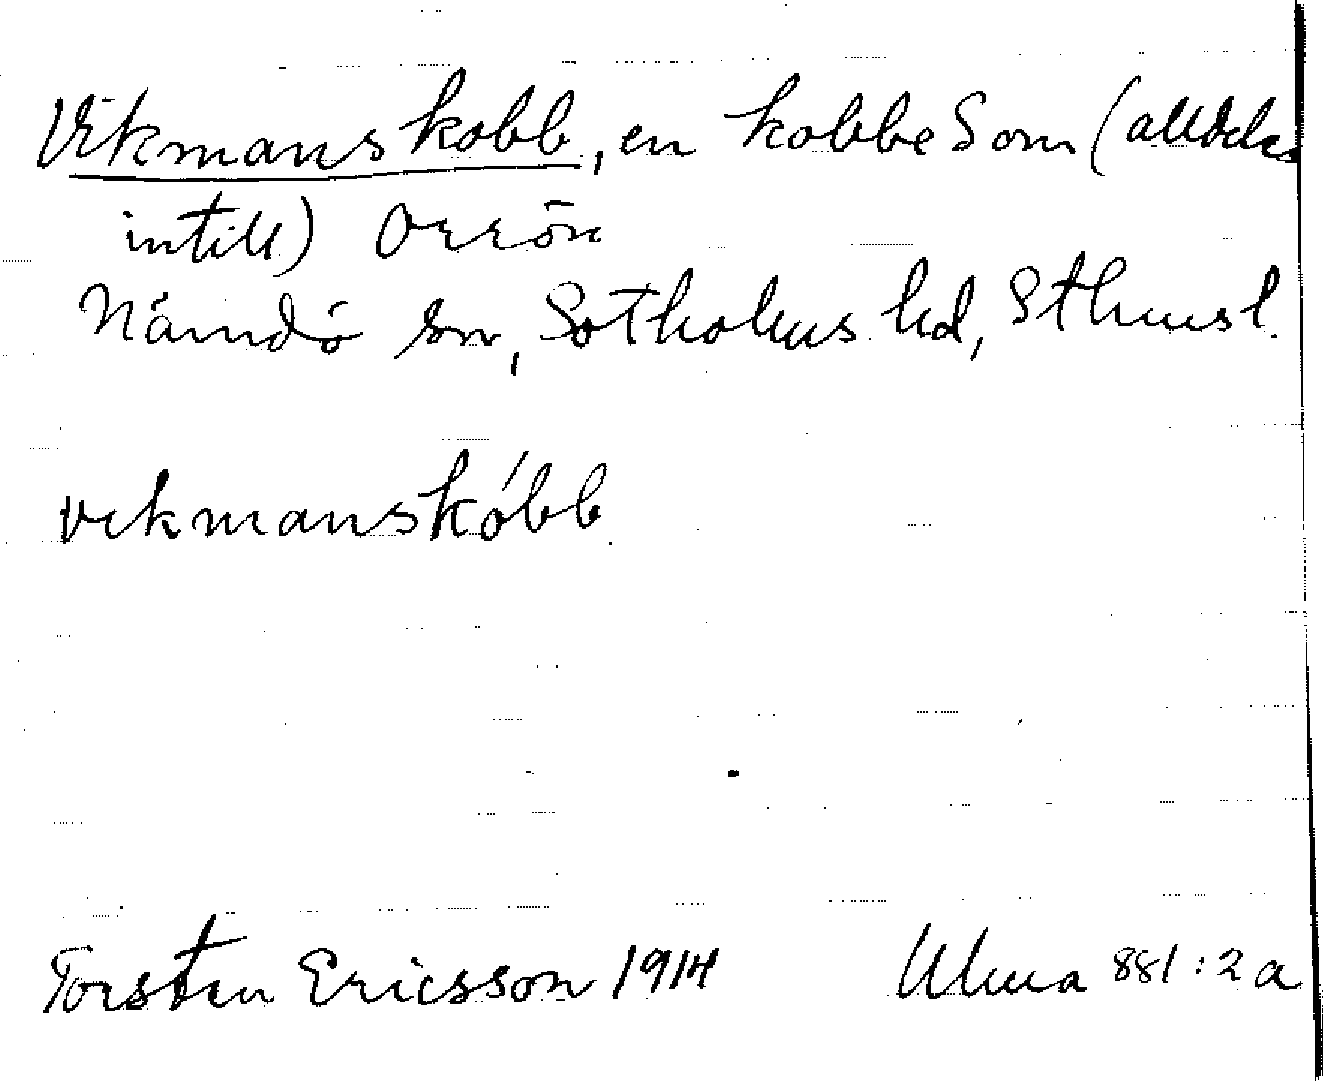 Vikmanskobb, en kobbe S om (alldeles
intill) Orrön
Nämdö sn, Sotholms hd, Sthmsl.
vikmanskóbb
Torsten Ericsson 1914 Ulma 881:2a